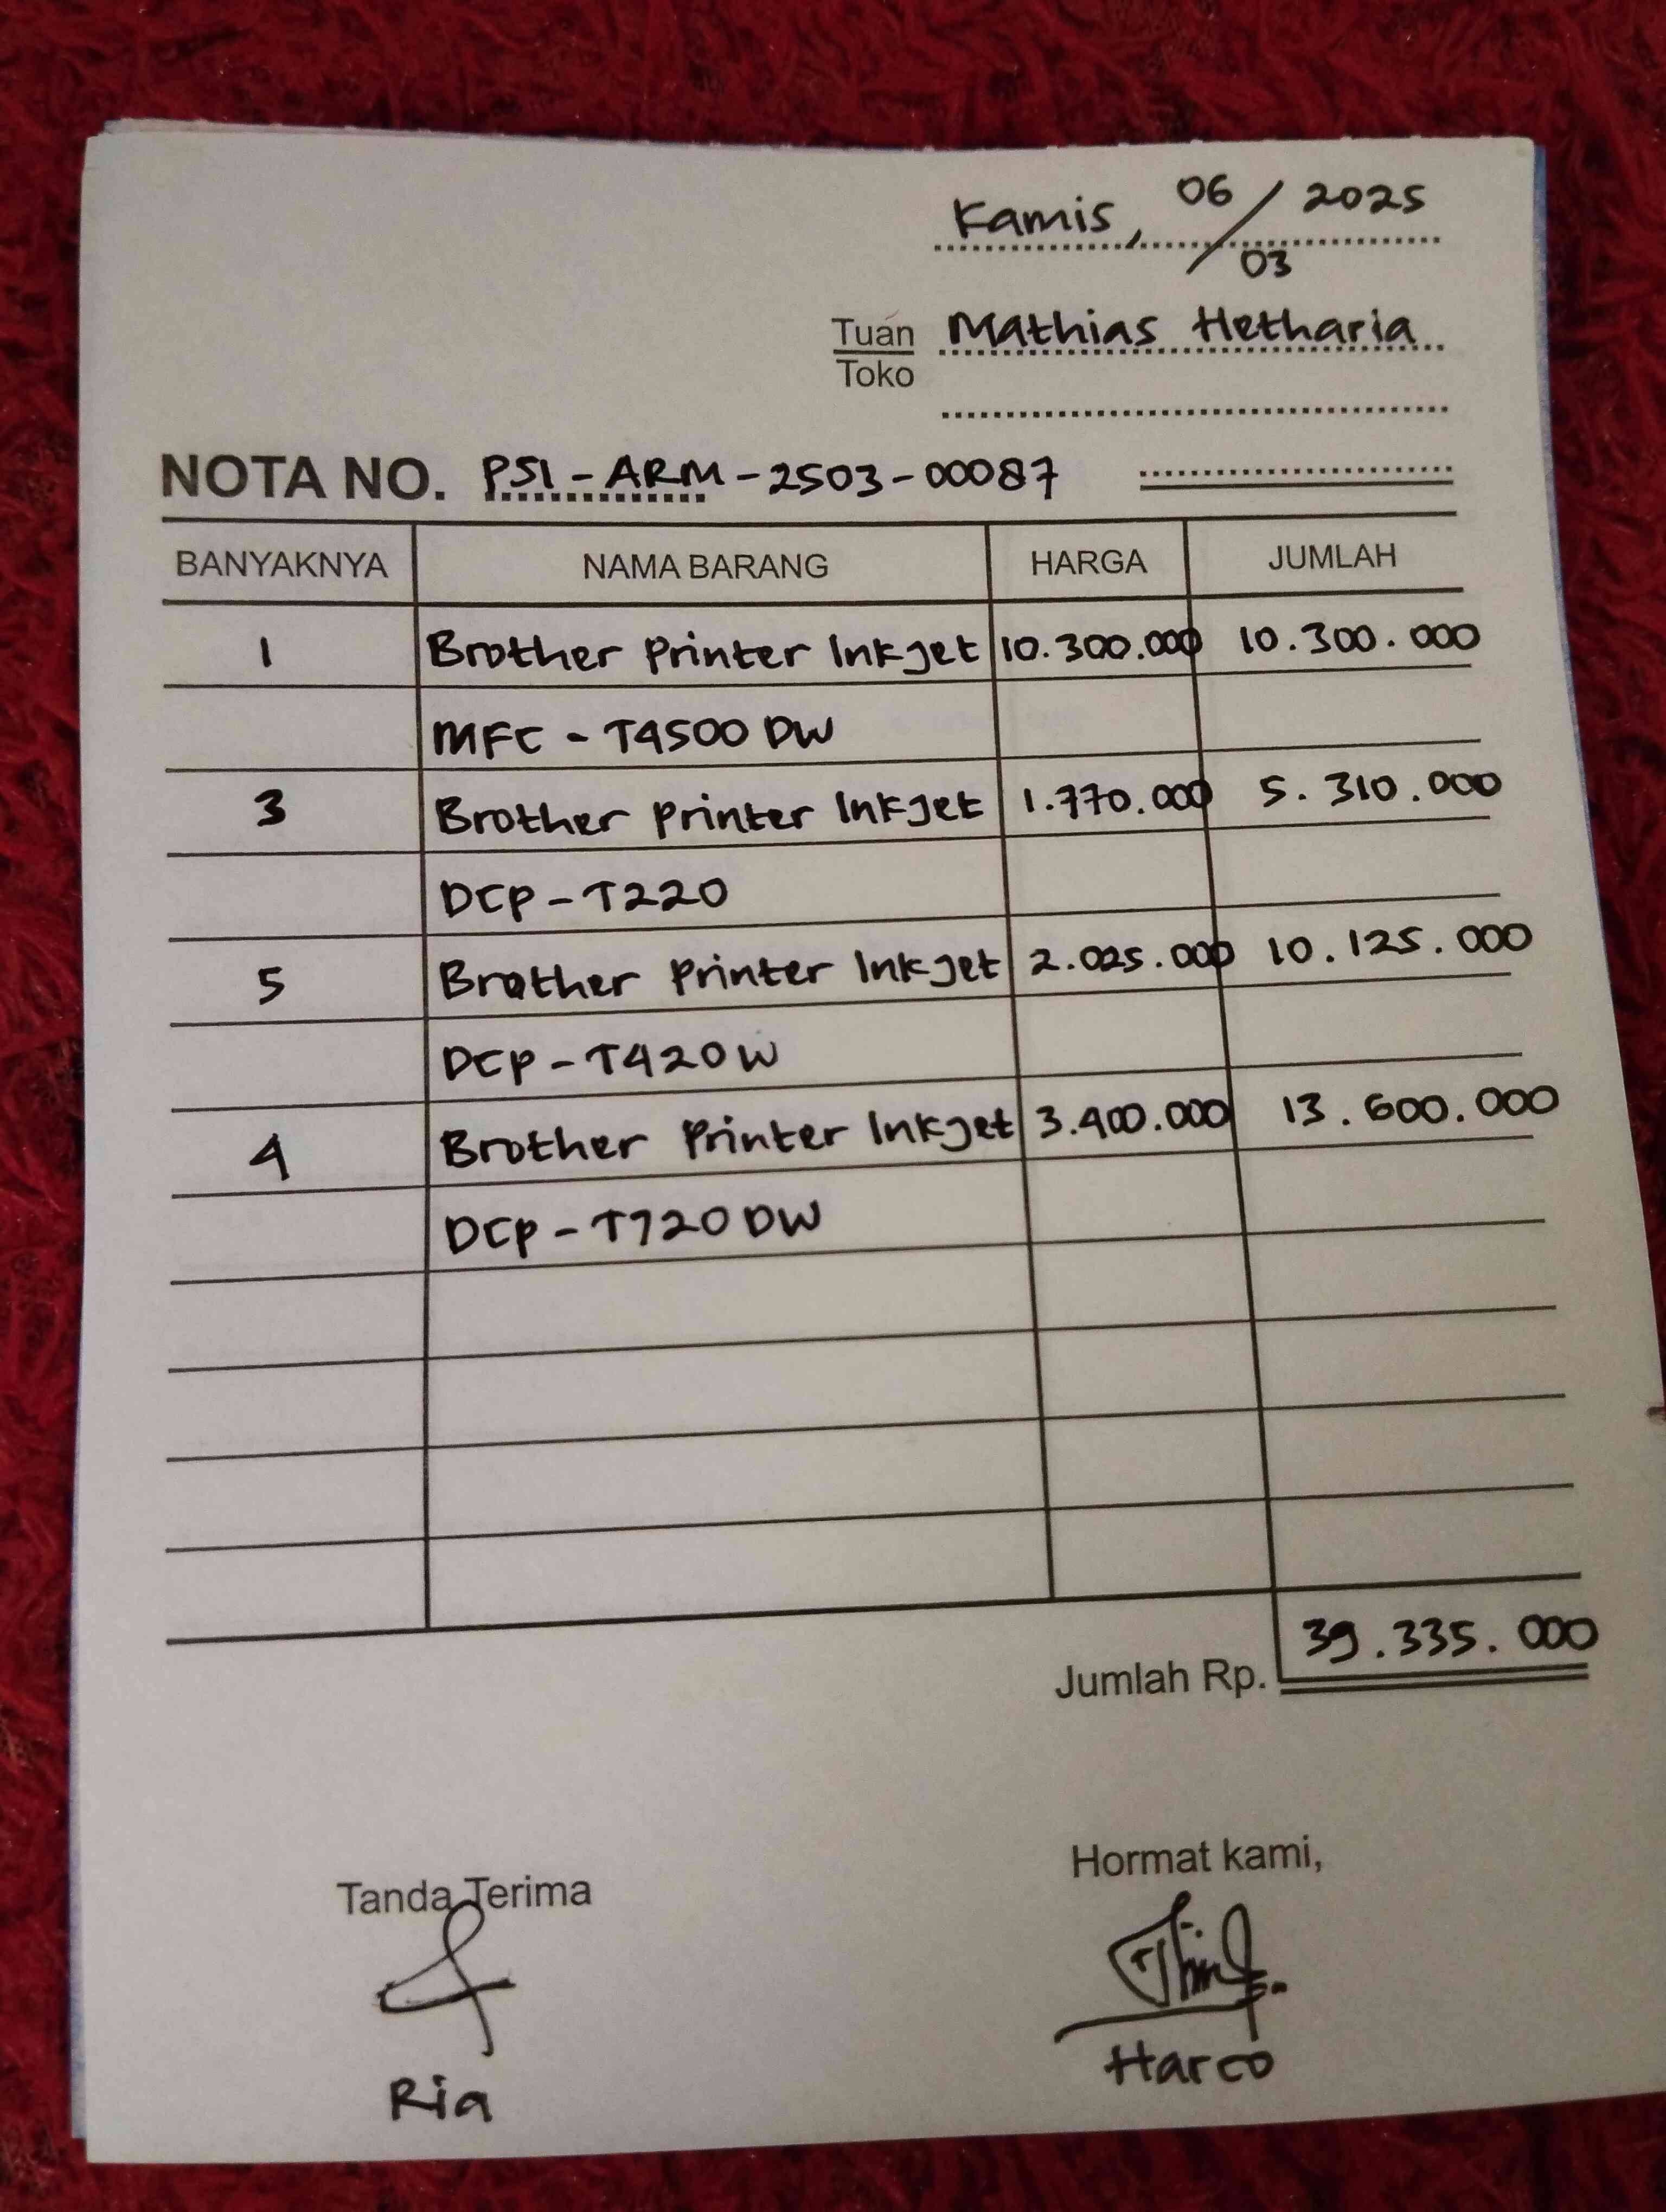 Kamis, 06/03 2025
Tuan Mathias Hetharia
Toko
NOTA NO. PSI-ARM-2503-00087
BANYAKNYA NAMA BARANG HARGA JUMLAH
1 Brother Printer Inkjet 10.300.000 10.300.000
MFC - T4500 DW
3 Brother Printer Inkjet 1.770.000 5.310.000
DCP - T220
5 Brother Printer Inkjet 2.025.000 10.125.000
DCP - T420W
4 Brother Printer Inkjet 3.400.000 13.600.000
DCP - T720 DW
Jumlah Rp. 39.335.000
Tanda Terima Hormat kami,
Ria Harco